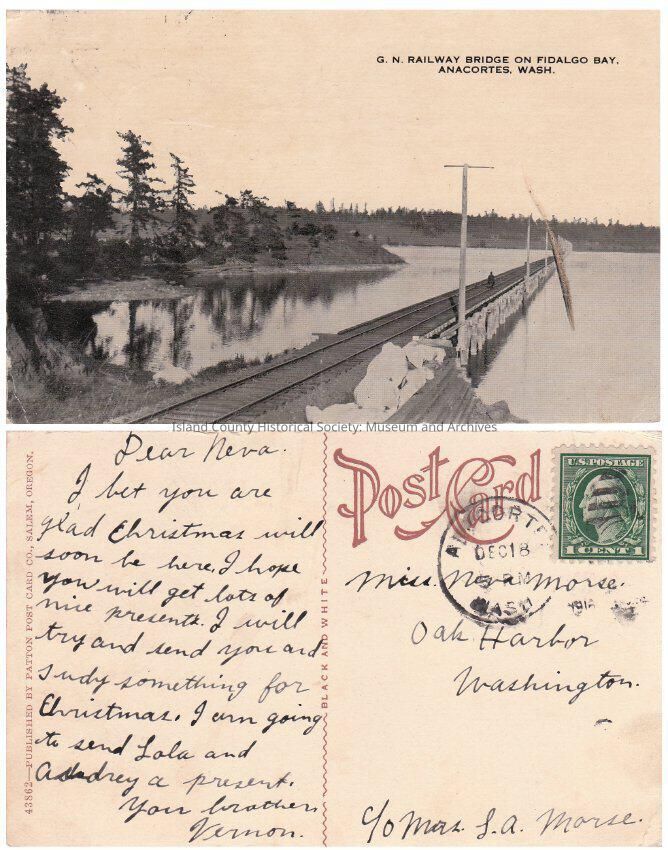 G. N. RAILWAY BRIDGE ON FIDALGO BAY,
ANACORTES, WASH.
Island County Historical Society: Museum and Archives
43862—PUBLISHED BY PATTON POST CARD CO., SALEM, OREGON.
Dear Neva.
I bet you are
glad Christmas will
soon be here. I hope
you will get lots of
nice presents. I will
try and send you and
Judy something for
Christmas. I am going
to send Lola and
Audrey a present.
Your brother,
Vernon.
BLACK AND WHITE
Post Card
U.S. POSTAGE
1 CENT 1
ANACORTES
DEC 18
5 PM
WASH
Miss. Neva Morse.
Oak Harbor
Washington.
c/o Mrs. L. A. Morse.